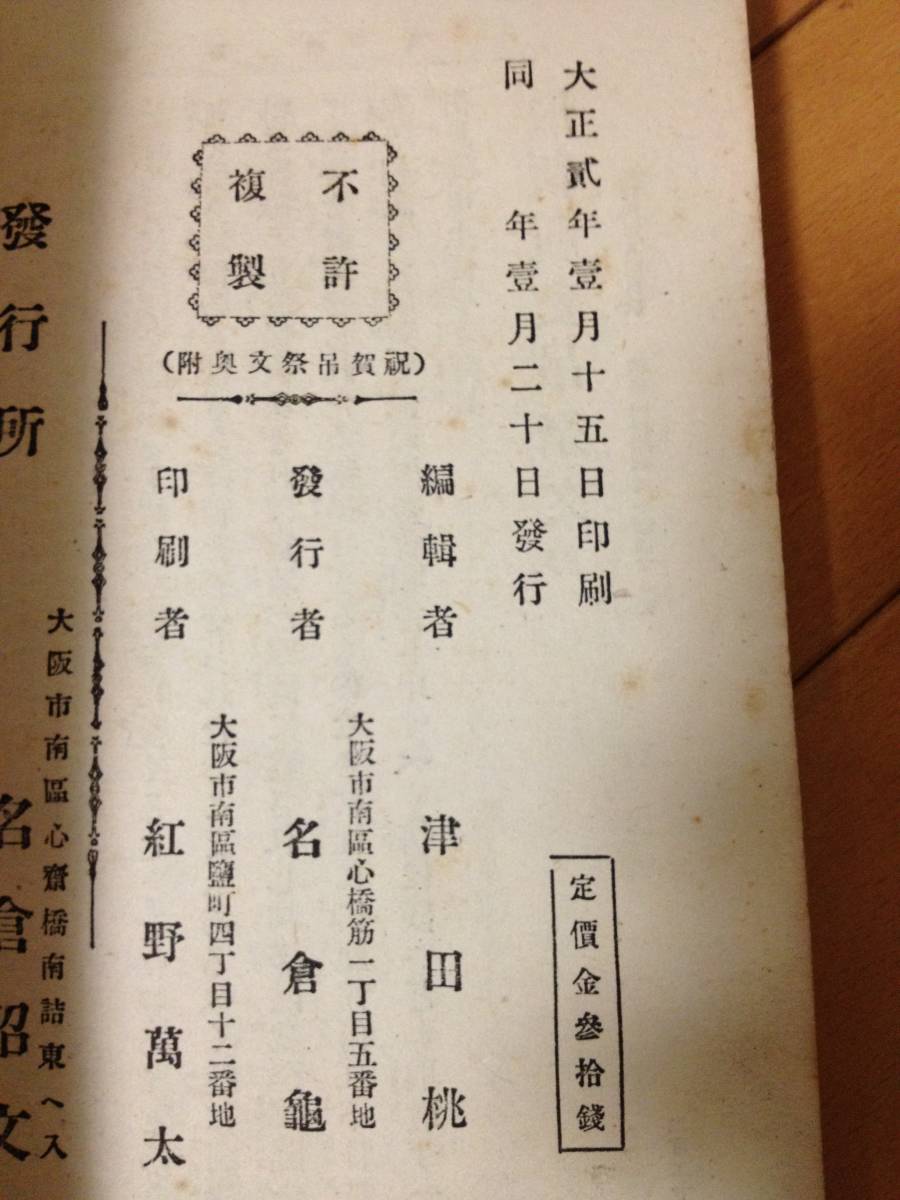 大正貳年壹月十五日印刷
同　年壹月二十日發行
定價金參拾錢
不許
複製
(祝賀吊祭文奥附)
編輯者　津田桃
大阪市南區心橋筋一丁目五番地
發行者　名倉龜
大阪市南區鹽町四丁目十二番地
印刷者　紅野萬太
大阪市南區心齋橋南詰東ヘ入
發行所　名倉昭文